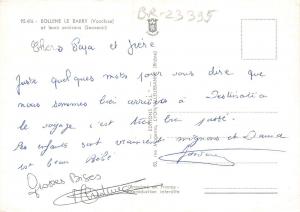 95.416 - BOLLENE LE BARRY (Vaucluse)
et leurs environs
BR-23395
Chers Papa et frère
Juste quelques mots pour vous dire que
nous sommes bien arrivés à destination
le voyage c'est très bien passé.
les enfants sont vraiment mignons et David
est beau Bébé
Grosses Bises
Reproduction interdite